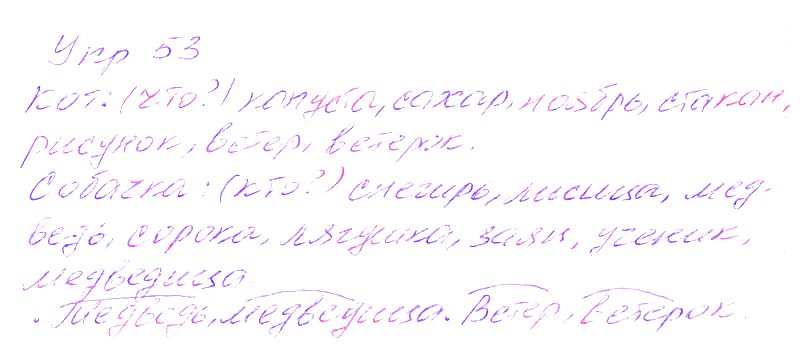 Упр 53
Кот: (что?) капуста, сахар, ноябрь, стакан,
рисунок, ветер, ветерок.
Собачка: (кто?) снегирь, лисица, мед-
ведь, сорока, лягушка, заяц, ученик,
медведица.
Медведь, медведица. Ветер, ветерок.